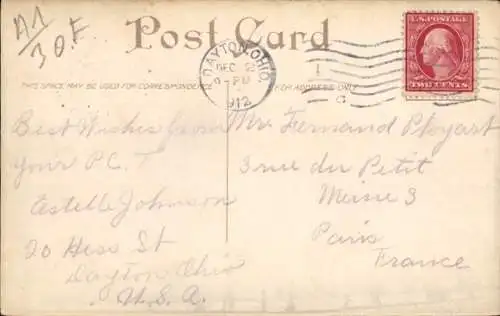 A1
30F
Post Card
THIS SPACE MAY BE USED FOR CORRESPONDENCE
FOR ADDRESS ONLY
DAYTON, OHIO.
DEC 2
PM
1912
U.S. POSTAGE
TWO CENTS
Best Wishes from
your P.C.
Estelle Johnson
20 Hess St
Dayton Ohio
U.S.A.
Mr Fernand Ployart
3 rue du Petit
3
Paris
France